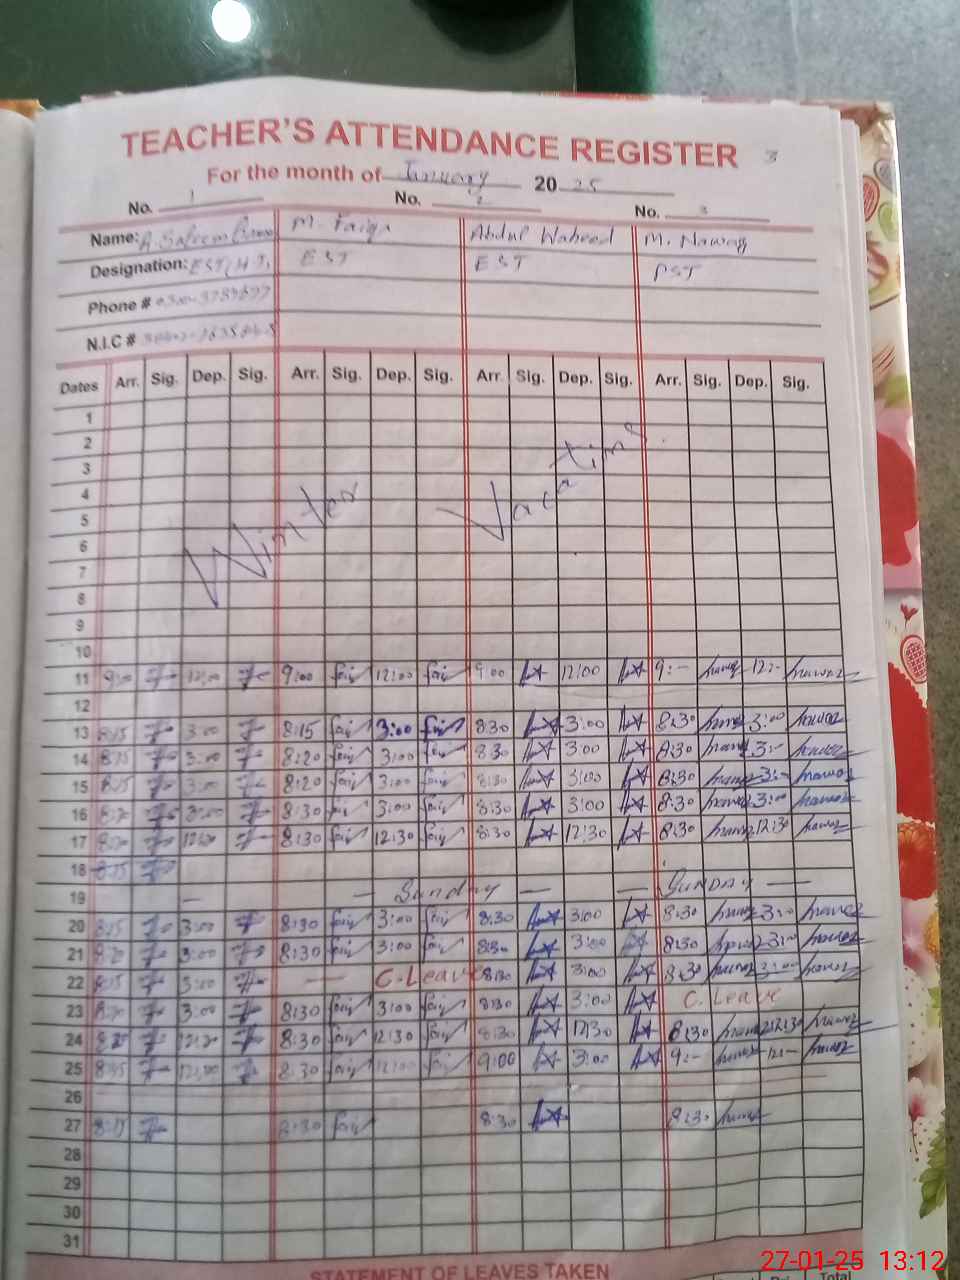 TEACHER'S ATTENDANCE REGISTER 3
For the month of January 2025
No. 1 No. 2 No. 3
Name: A. Saleem M. Faiqa Abdul Waheed M. Nawaz
Designation: EST EST EST PST
Phone #
N.I.C #
Dates Arr. Sig. Dep. Sig. Arr. Sig. Dep. Sig. Arr. Sig. Dep. Sig. Arr. Sig. Dep. Sig.
1
2
3
4
5
6
7
8
9
10
Winter Vacations
11 9:00 12:00 9:00 faiq 12:00 faiq 9:00 12:00 9:- nawaz 12:- nawaz
12
13 8:15 3:00 8:15 faiq 3:00 faiq 8:30 3:00 8:30 nawaz 3:00 nawaz
14 8:15 3:00 8:20 faiq 3:00 faiq 8:30 3:00 8:30 nawaz 3:- nawaz
15 8:15 3:00 8:20 faiq 3:00 faiq 8:30 3:00 8:30 nawaz 3:00 nawaz
16 8:20 3:00 8:30 faiq 3:00 faiq 8:30 3:00 8:30 nawaz 3:00 nawaz
17 12:30 8:30 faiq 12:30 faiq 8:30 12:30 8:30 nawaz 12:30 nawaz
18 8:15
19 — — Sunday — — SUNDAY —
20 8:15 3:00 8:30 faiq 3:00 faiq 8:30 3:00 8:30 nawaz 3:00 nawaz
21 8:20 3:00 8:30 faiq 3:00 faiq 8:30 3:00 8:30 nawaz 3:00 nawaz
22 8:15 3:00 — C. Leave 8:30 3:00 8:30 nawaz 3:00 nawaz
23 8:20 3:00 8:30 faiq 3:00 faiq 8:30 3:00 C. Leave
24 8:20 8:30 faiq 12:30 faiq 8:30 12:30 8:30 nawaz 12:30 nawaz
25 12:00 8:30 faiq 12:00 faiq 9:00 3:00 9:- nawaz 12:- nawaz
26
27 8:15 faiq 8:30 8:30 nawaz
28
29
30
31
STATEMENT OF LEAVES TAKEN
Total
27-01-25 13:12